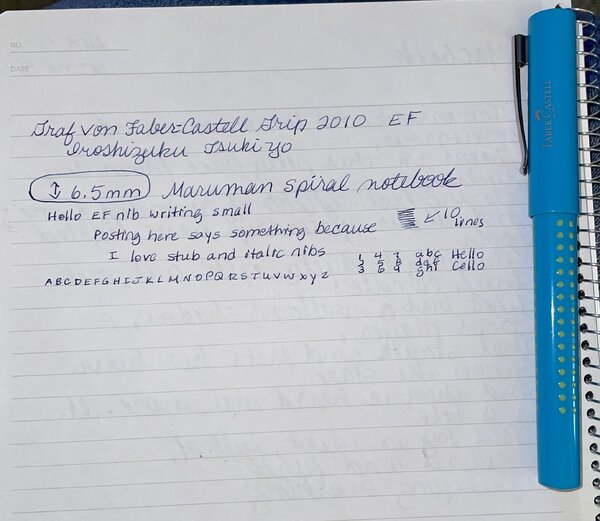 NO.
DATE
Graf von Faber-Castell Grip 2010 EF
Iroshizuku Tsukiyo
↕ 6.5mm Maruman spiral notebook
Hello EF nib writing small
Posting here says something because ← 10 lines
I love stub and italic nibs
1 4 7 abc Hello
2 5 8 def
3 6 9 ghi Cello
ABCDEFGHIJKLMNOPQRSTUVWXYZ
FABER-CASTELL